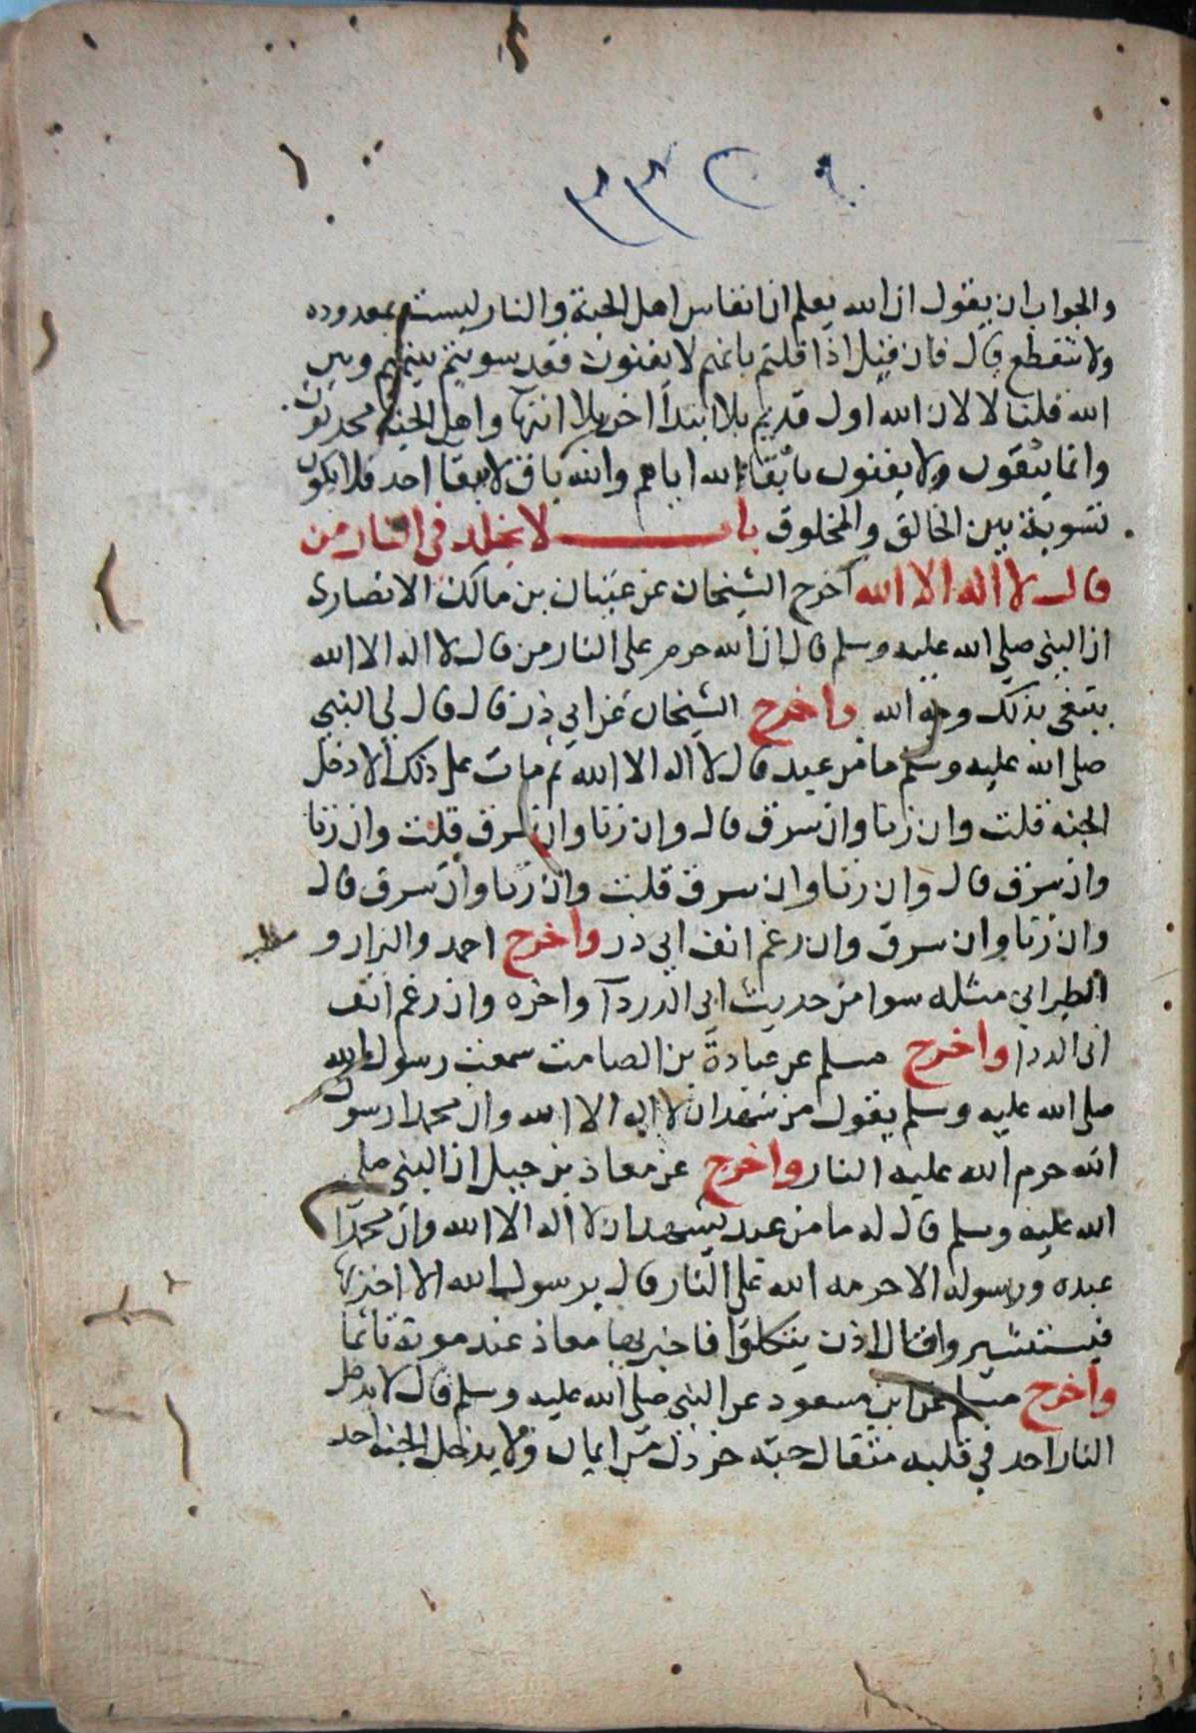 والجواب ان يقول ان الله يعلم ان انفاس اهل الجنة والنار ليست بمعدوده
ولا تنقطع قال فان قيل اذا قلتم بانهم لا يفنون فقد سويتم بينهم وبين
الله قلنا لا لان الله اول قديم بلا ابتدا اخر بلا انتها واهل الجنة محدثون
وانما يبقون ولا يفنون بابقاء الله اياهم والله باق لا بابقا احد فلا يكون
تسوية بين الخالق والمخلوق باب لا يخلد في النار من
قال لا اله الا الله اخرج الشيخان عن عتبان بن مالك الانصارى
ان النبي صلى الله عليه وسلم قال ان الله حرم على النار من قال لا اله الا الله
يبتغى بذلك وجه الله واخرج الشيخان عن ابي ذر قال قال لي النبي
صلى الله عليه وسلم ما من عبد قال لا اله الا الله ثم مات على ذلك الا دخل
الجنه قلت وان زنا وان سرق قال وان زنا وان سرق قلت وان زنا
وان سرق قال وان زنا وان سرق قلت وان زنا وان سرق قال
وان زنا وان سرق وان رغم انف ابي در واخرج احمد والبزار و
الطبراني مثله سوا من حديث ابي الدردآ واخره وان رغم انف
ابى الددا واخرج مسلم عن عبادة بن الصامت سمعت رسول الله
صلى الله عليه وسلم يقول من شهد ان لا اله الا الله وان محمدا رسول
الله حرم الله عليه النار واخرج عن معاذ بن جبل ان النبي صلى
الله عليه وسلم قال له ما من عبد يشهد ان لا اله الا الله وان محمدا
عبده ورسوله الا حرمه الله على النار قال يرسول الله الا اخبر بها
فيستشيروا قال اذن يتكلوا فاخبر بها معاذ عند موته تاثما
واخرج مسلم عن ابن مسعود عن النبي صلى الله عليه وسلم قال لا يدخل
النار احد في قلبه مثقال حبه خردل من ايمان ولا يدخل الجنه احد